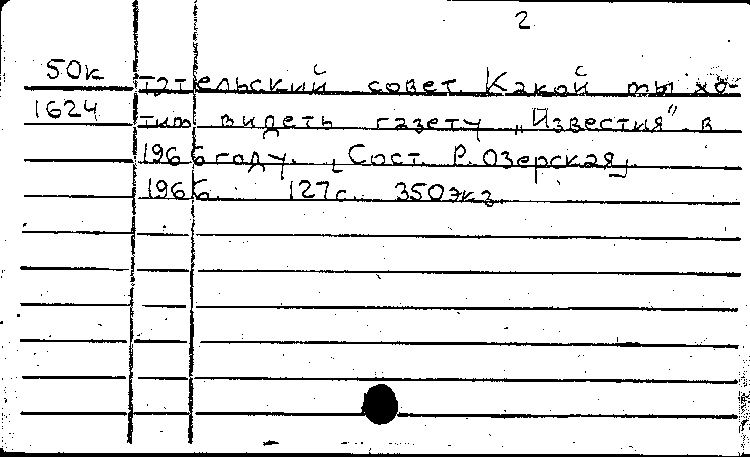 2
50к тательский совет Какой мы хо-
1624 тим видеть газету „Известия" в
1966 году. [Сост. Р. Озерская].
1966. 127с. 350экз.